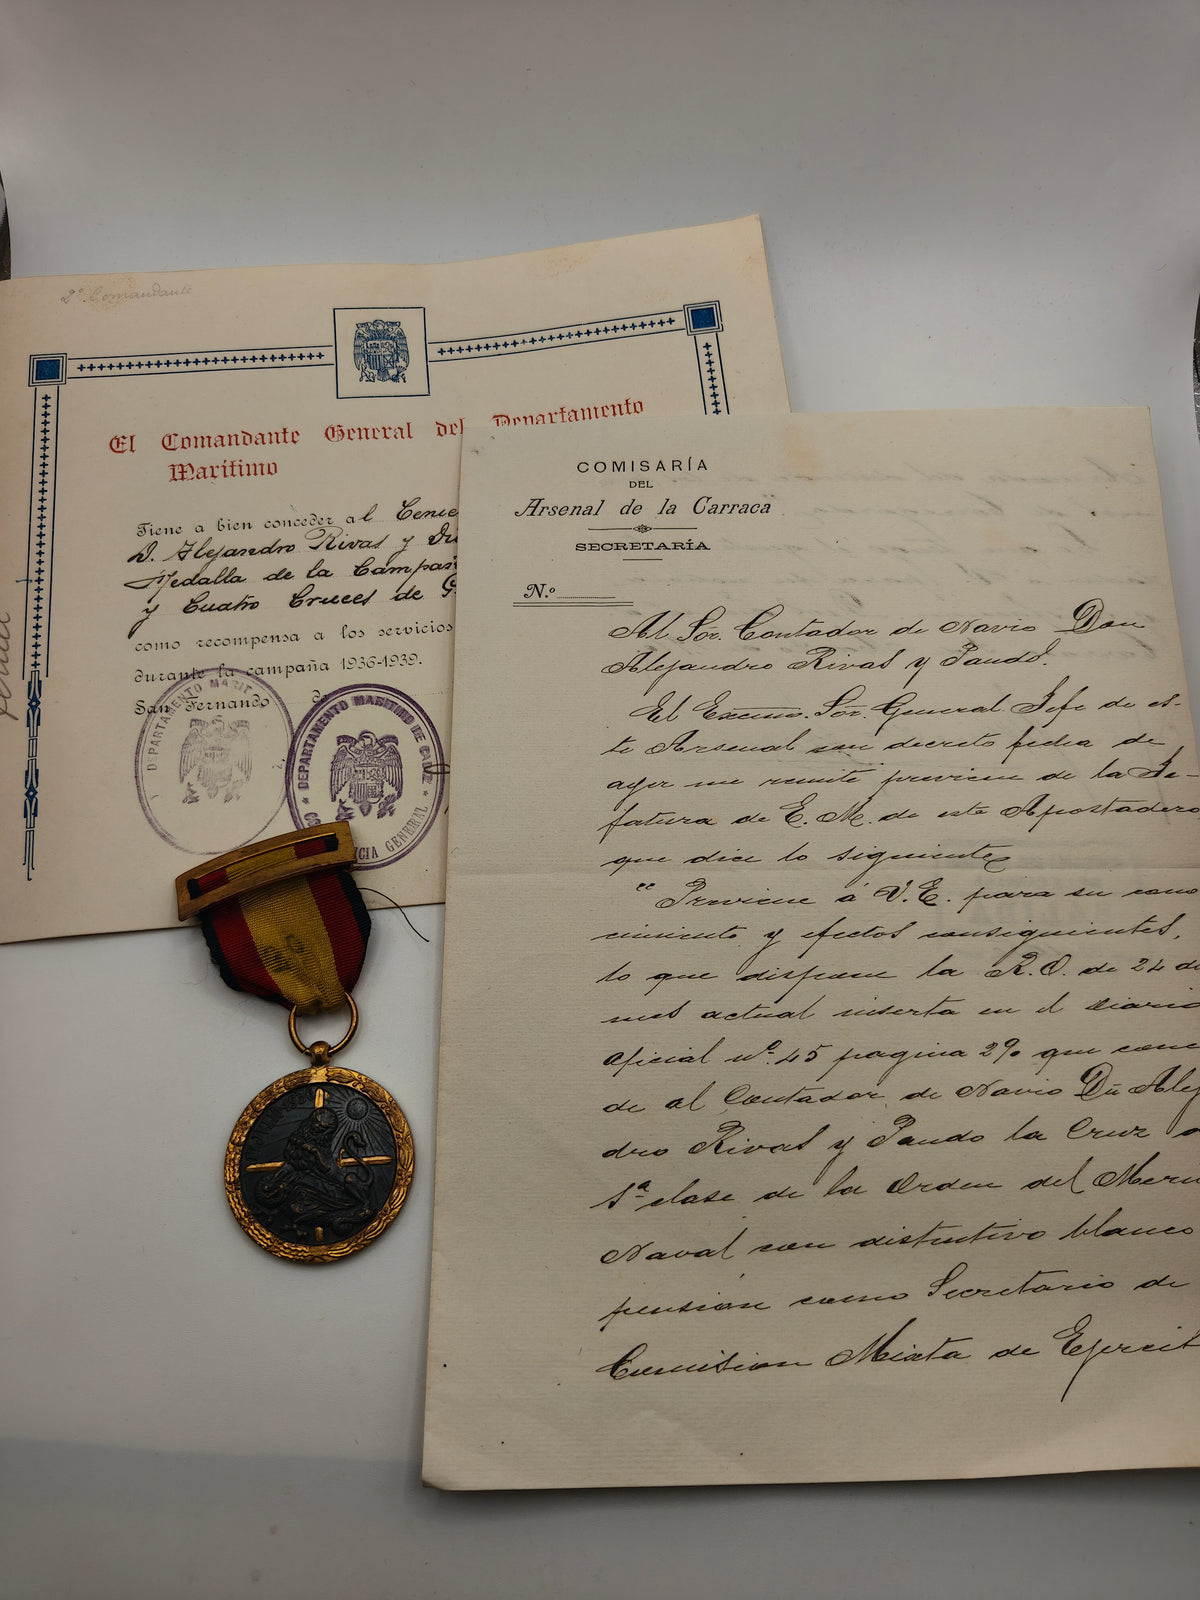 2º Comandante
El Comandante General del Departamento
Marítimo
Tiene a bien conceder al
D. Alejandro Rivas y
Medalla de la Campañ
y Cuatro Cruces de G
como recompensa a los servicios
durante la campaña 1936-1939.
San Fernando de
DEPARTAMENTO MARIT
DEPARTAMENTO MARITIMO DE CADIZ
CIA GENERAL
COMISARÍA
DEL
Arsenal de la Carraca
SECRETARÍA
N.º
Al Sor. Contador de Navío Don
Alejandro Rivas y Pando.
El Excmo. Sor. General Jefe de es-
te Arsenal con decreto fecha de
ayer me remite previene de la Je-
fatura de E. M. de este Apostadero
que dice lo siguiente
"Previene á V.E. para su cono
cimiento y efectos consiguientes,
lo que dispone la R.O. de 24 de
mes actual inserta en el Diario
Oficial nº 45 pagina 29 que conce
de al Contador de Navio Dn Alej
dro Rivas y Pando la Cruz
1ª clase de la Orden del Meri
Naval con distintivo blanco
pensión como Secretario de
Comision Mixta de Ejercit